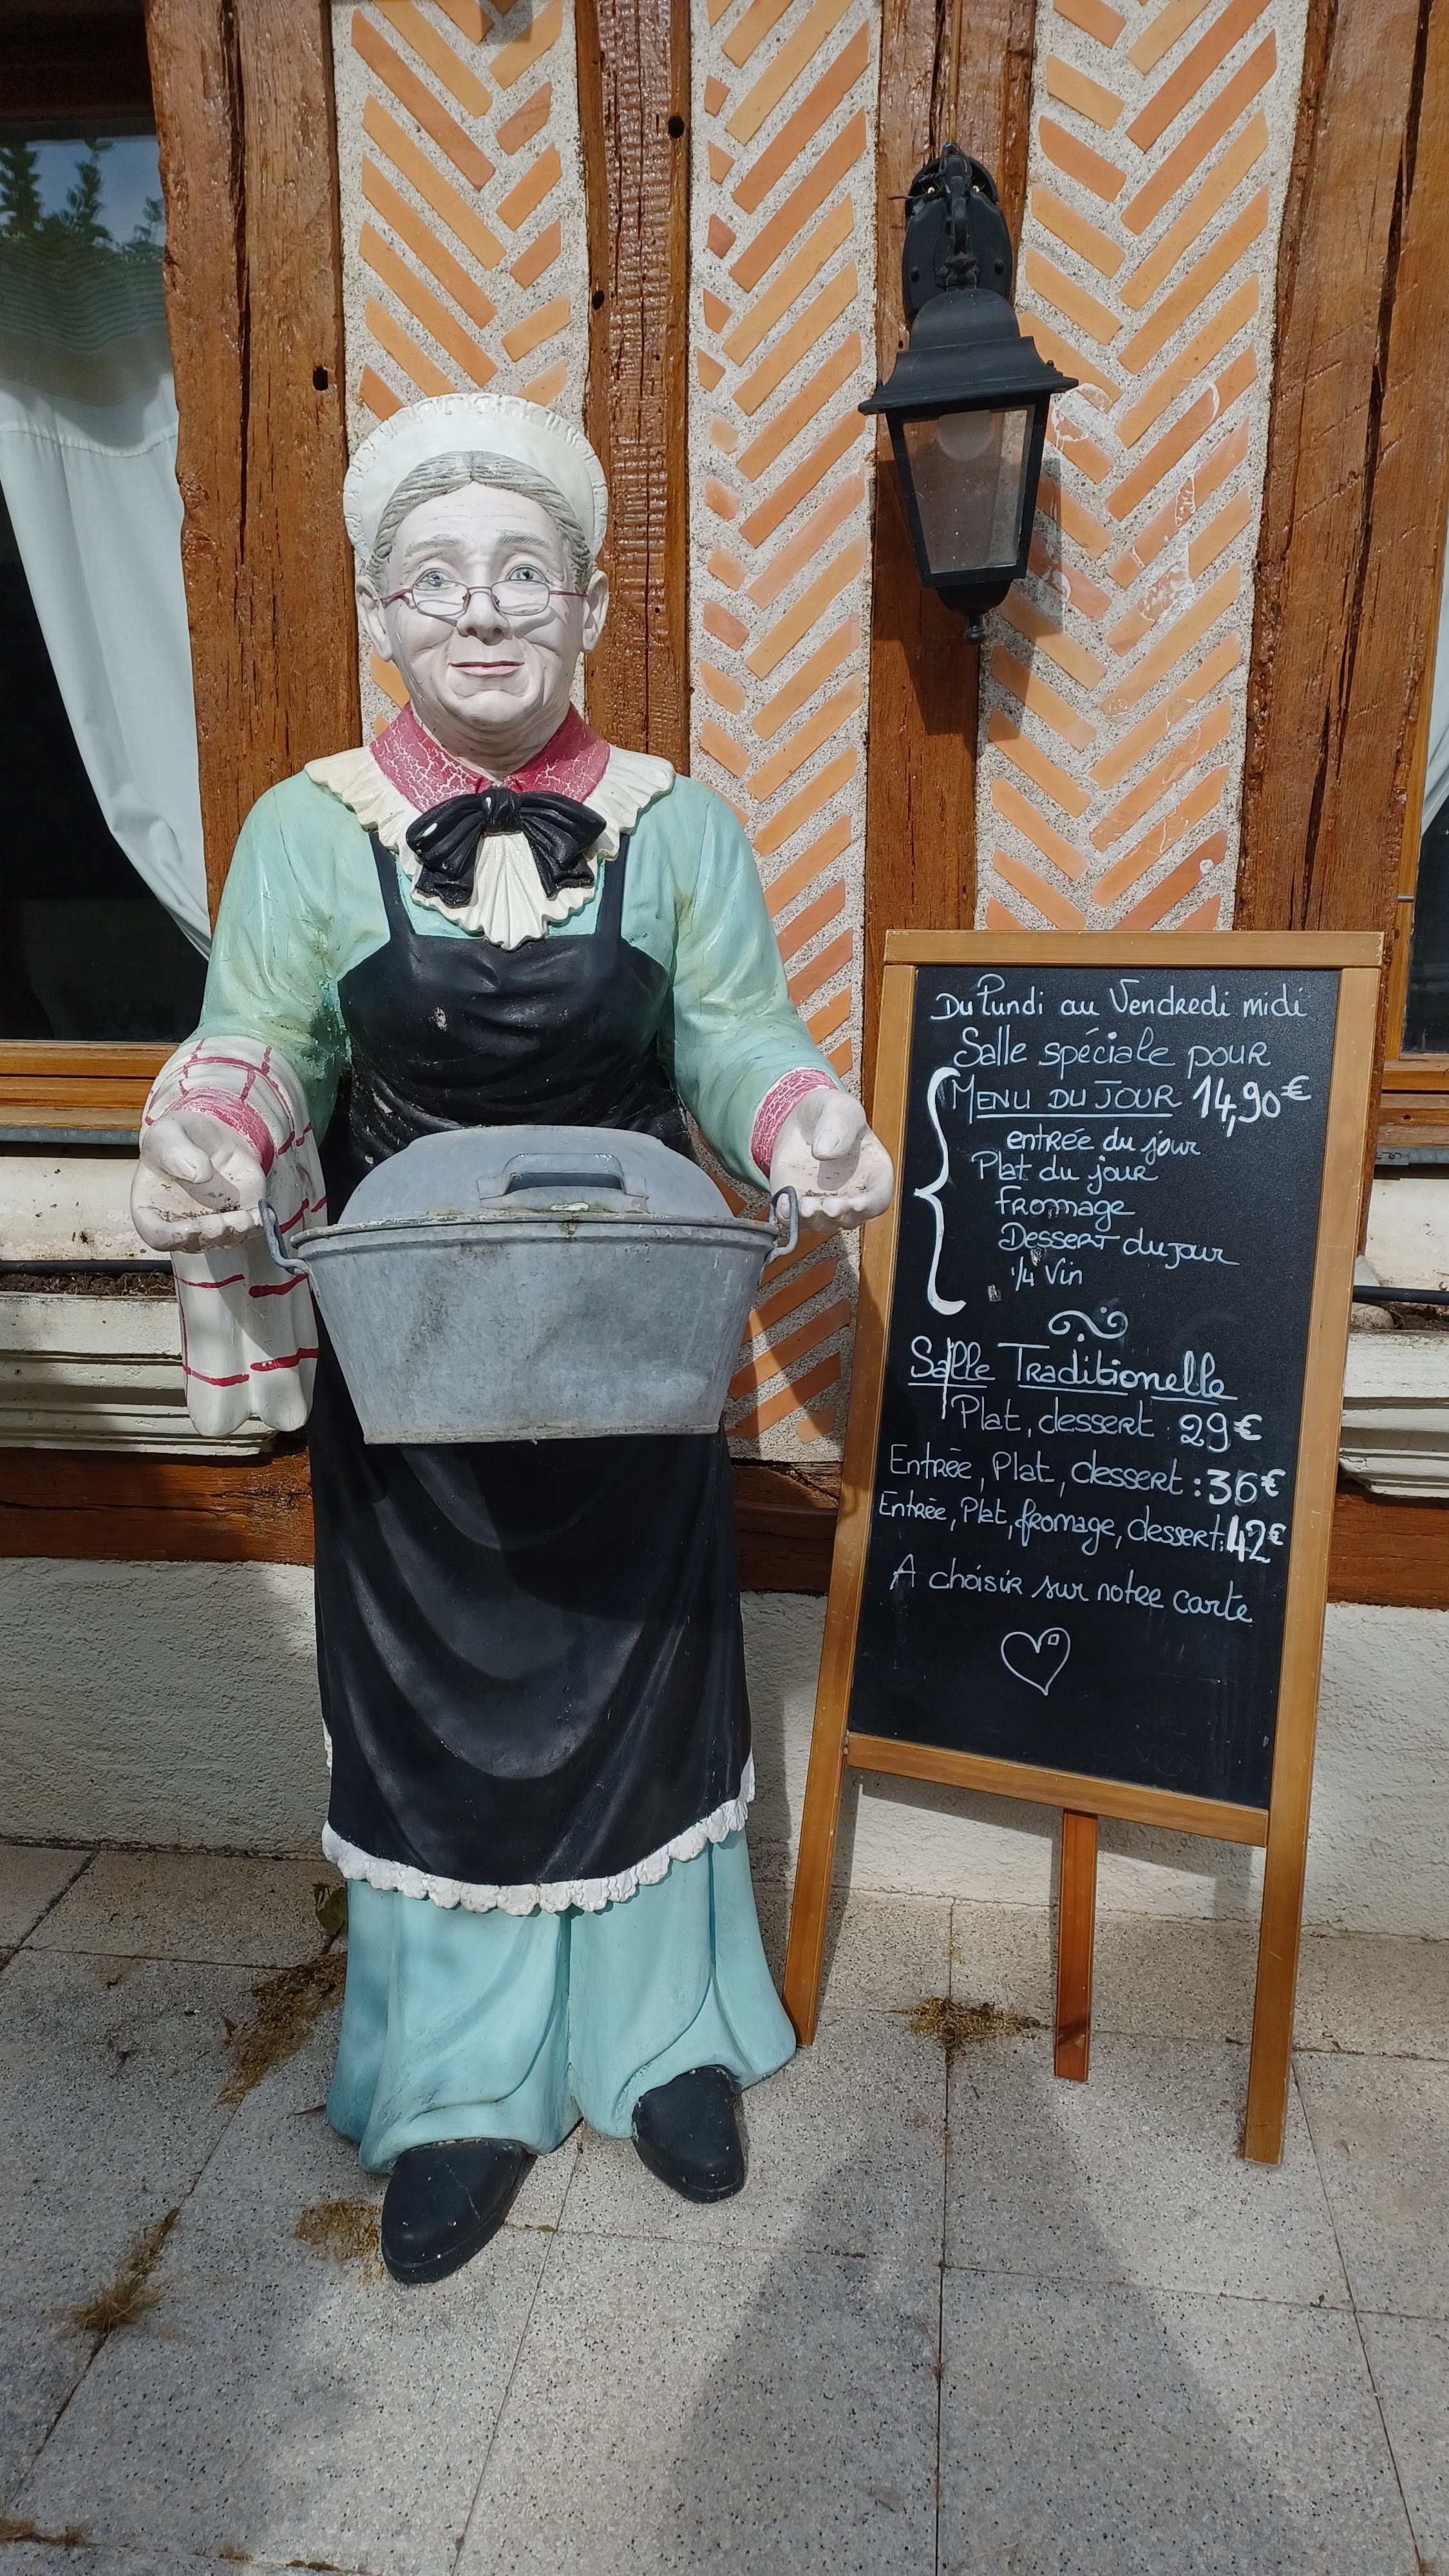 Du Lundi au Vendredi midi
Salle spéciale pour
MENU DU JOUR 14,90€
entrée du jour
Plat du jour
fromage
Dessert du jour
1/4 Vin
Salle Traditionelle
Plat, dessert : 29€
Entrée, Plat, dessert : 36€
Entrée, Plat, fromage, dessert : 42€
A choisir sur notre carte